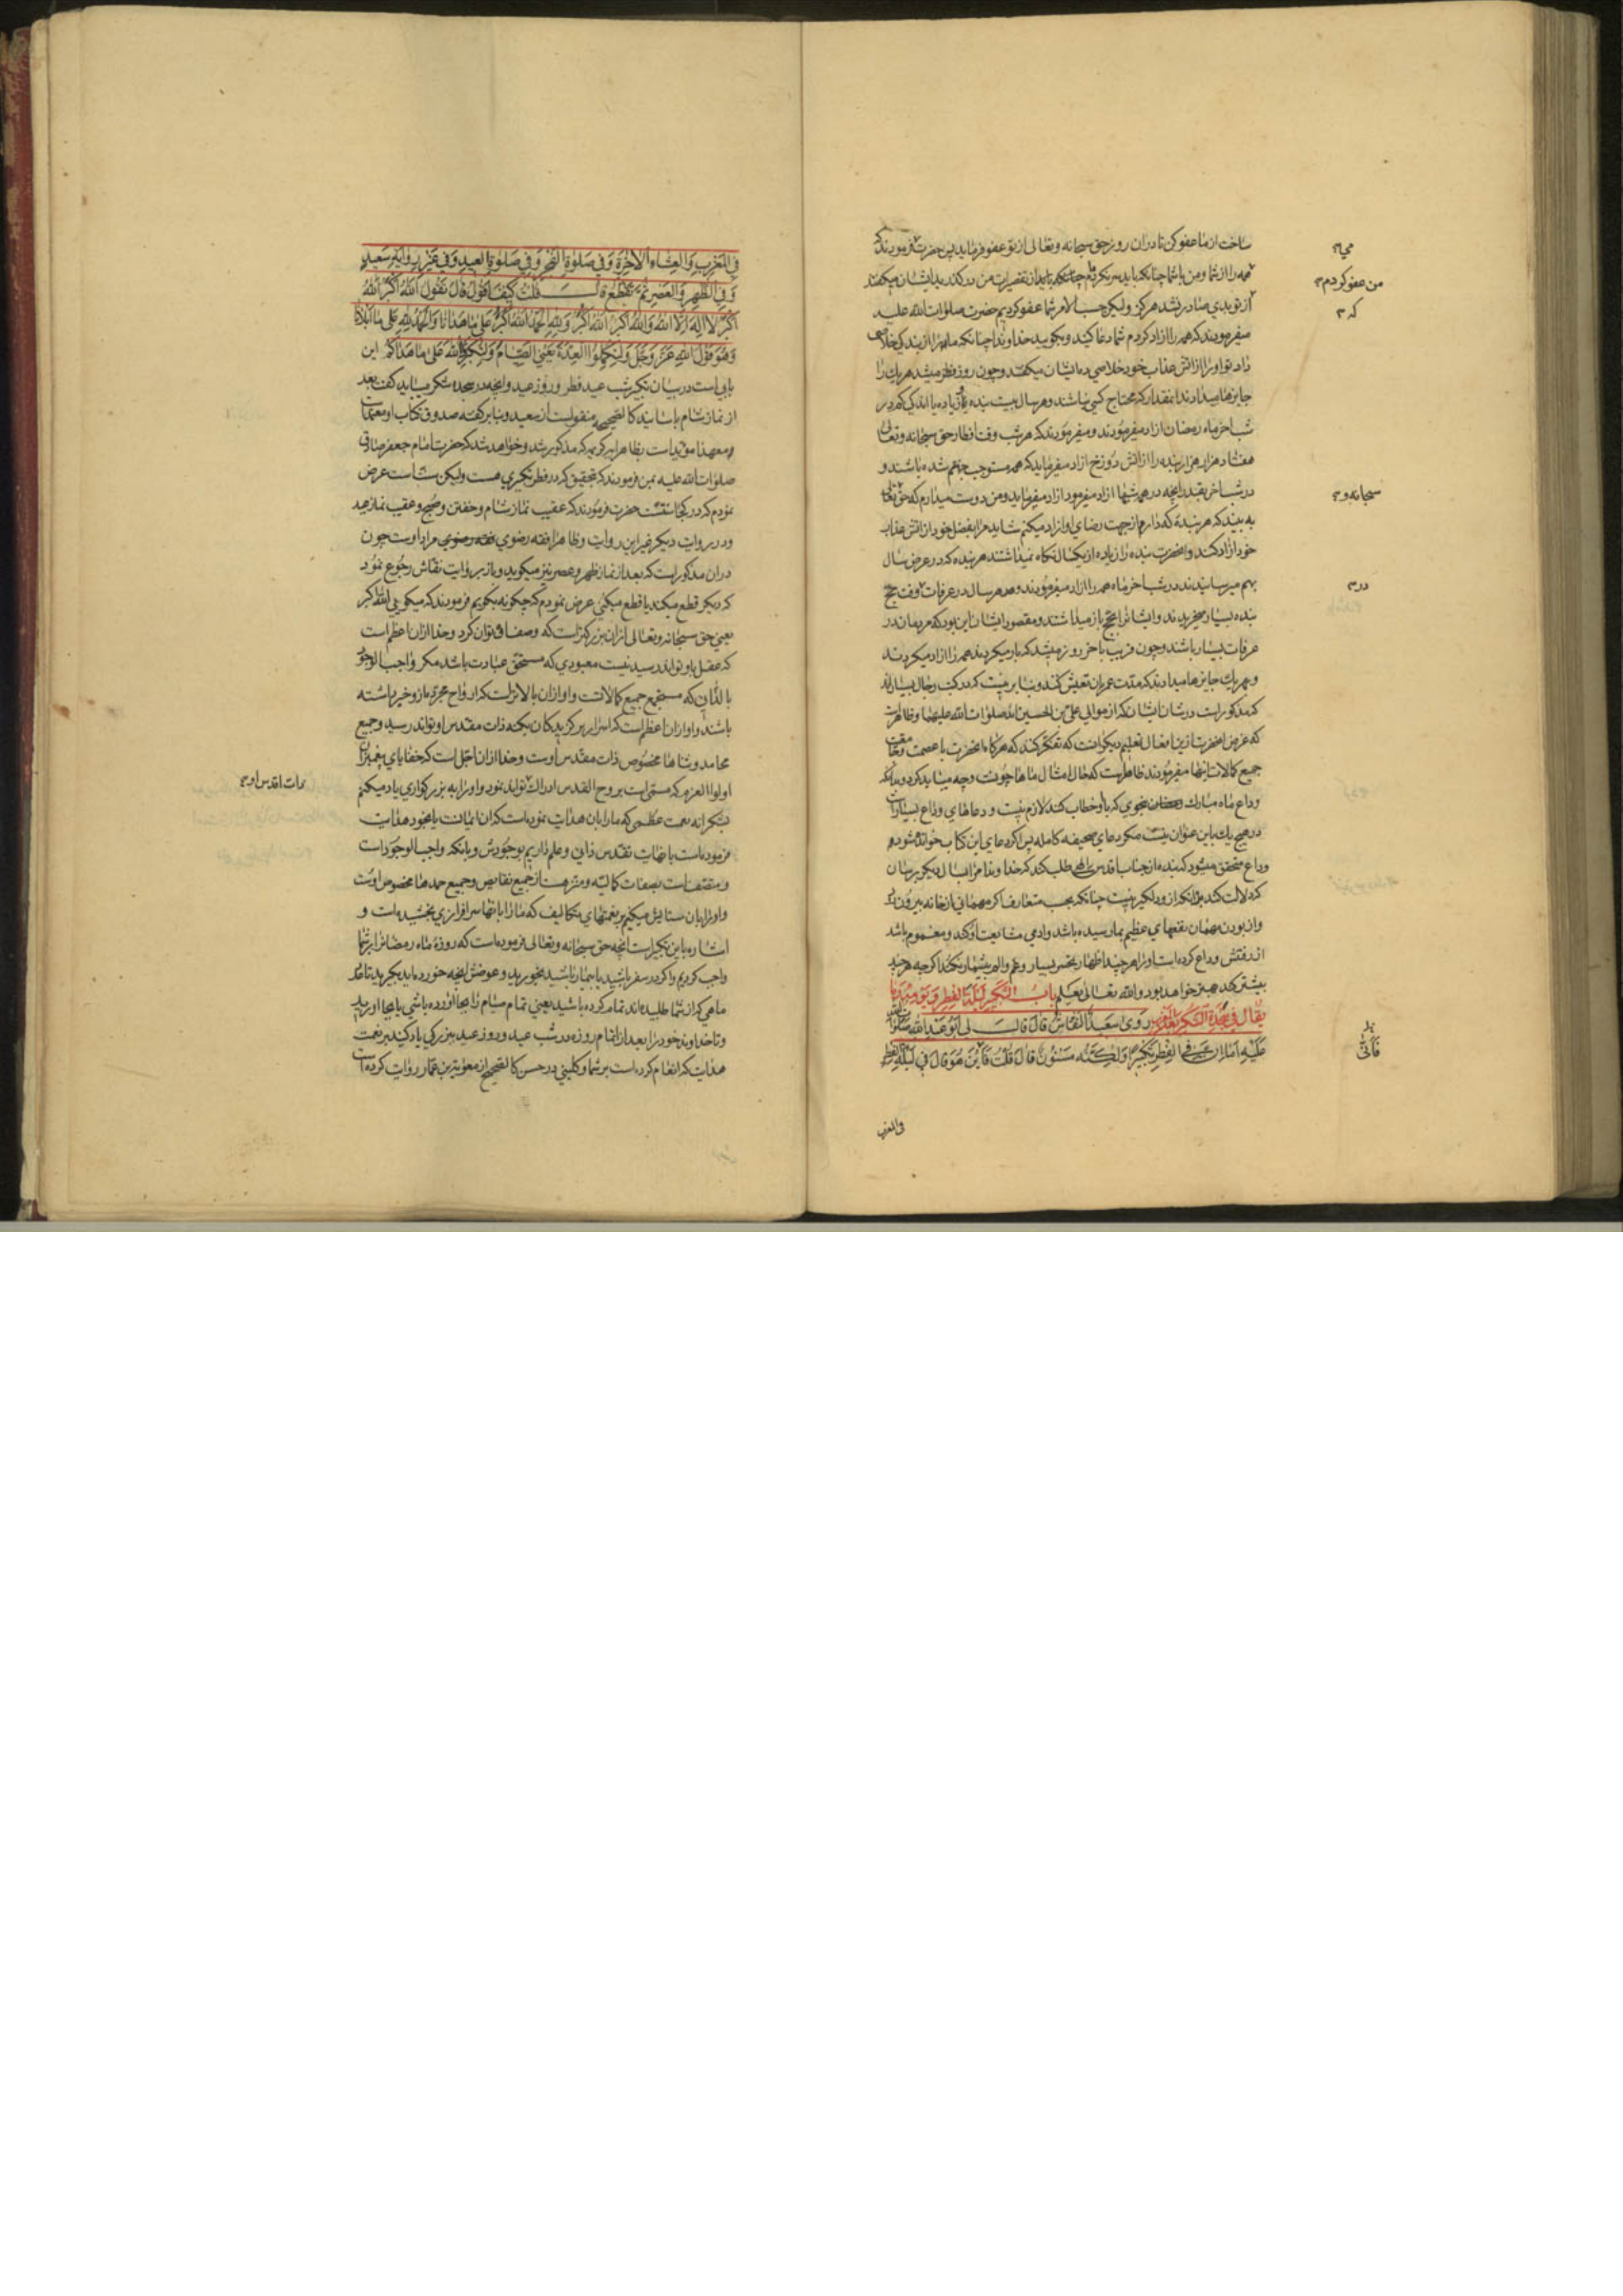 ساخت از ما عفو کن تا در آن روز حق سبحانه و تعالی از تو عفو فرماید پس حضرت فرمودند که
همه را از شما و من با شما چنانکه باید سر نکردم
از تو بدی صادر نشد هرگز ولیکن حسب الامر شما عفو کردیم حضرت صلوات الله علیه
میفرمودند که همه را آزاد کردم شما دعا کنید و بگویید خداوندا چنانکه ما را از بندگی خلاصی
داد تو او را از آتش عذاب خود خلاصی ده ایشان میگفتند و چون روز فطر میشد هر یک را
جایزها میدادند آنقدر که محتاج کسی نباشند و هر سال بیست بنده یا زیاده یا اندکی کمتر در
شب آخر ماه رمضان آزاد میفرمودند و میفرمودند که هر شب وقت افطار حق سبحانه و تعالی
هفتاد هزار هزار بنده را از آتش دوزخ آزاد میفرماید که همه مستوجب جهنم شده باشند و
در شب آخر بقدر آنچه در همه شبها آزاد میفرمود آزاد میفرماید و من دوست میدارم که حق تعالی
به بیند که هر بنده که دارم از جهت رضای او آزاد میکنم شاید مرا بفضل خود از آتش عذاب
خود آزاد کند و آنحضرت بنده را زیاده از یکسال نگاه نمیداشتند هر بنده که در عرض سال
بهم میرسانیدند در شب آخر ماه همه را آزاد میفرمودند و هر سال در عرفات وقت حج
بنده بسیار میخریدند و ایشانرا بحج باز میداشتند و مقصود ایشان این بود که مردمان در
عرفات بسیار باشند و چون قریب بآخر روز میشد که بار میکردند همه را آزاد میکردند
و بهر یک جایزها میدادند که مدت عمر بان تعیش کنند و بنا برینست که در کتب رجال بسیار
که مذکور است در شان ایشان که از موالی علی بن الحسین اند صلوات الله علیهما و ظاهر است
که غرض آنحضرت ازین افعال تعلیم دیگرانست که تفکر کنند که هرگاه آنحضرت با عصمت و
جمیع کمالات اینها میفرمودند ظاهر است که حال امثال ماها چونست و چه میباید کرد و بدانکه
وداع ماه مبارک بنحوی که با و خطاب کنند لازم نیست و دعاهای وداع بسیار است
در هیچ یک باین عنوان نیست مگر دعای صحیفه کامله پس اگر دعای این کتاب خوانده شود
وداع متحقق میشود که بنده از جناب اقدس الهی طلب کند که خداوندا مرا بسال دیگر برسان
که دلالت کند بر آنکه از و دلگیر نیست چنانکه بحسب متعارف اگر مهمانی از خانه بیرون
و از بودن مهمان نفعهای عظیم بما رسیده باشد و آدمی مشایعت او کند و مغموم باشد
از رفتنش وداع کرده است او را هر چند اظهار تحسر بسیار و غم و الم بیشمار نکند اگر چه هر چند
بیشتر کند بهتر خواهد بود و الله تعالی یعلم باب التكبير ليلة الفطر ويومه وما
يقال في سجدة الشكر بعد المغرب روى سعيد النقاش قال قال لي ابو عبد الله صلوات الله
عليه اما ان في الفطر تكبيرا ولكنه مسنون قال قلت فاين هو قال في ليلة الفطر
في المغرب
من عفو کردم
که
سبحانه و
در
فانی
في المغرب والعشاء الآخرة وفي صلوة الفجر وفي صلوة العيد وفي غير رواية سعيد
وفي الظهر والعصر ثم تقطع قال قلت كيف اقول قال تقول الله اكبر الله
اكبر لا اله الا الله والله اكبر الله اكبر ولله الحمد الله اكبر على ما هدانا والحمد لله على ما ابلانا
وهو قول الله عز وجل ولتكملوا العدة يعني الصيام ولتكبروا الله على ما هداكم این
بابی است در بیان تکبیر شب عید فطر و روز عید و آنچه در سجده شکر میباید گفت بعد
از نماز شام باسانید کالصحیح منقولست از سعید و بنا بر گفته صدوق کتاب او معتمد است
و معهذا مؤید است بظاهر آیه کریمه که مذکور شد و خواهد شد که حضرت امام جعفر صادق
صلوات الله علیه بمن فرمودند که بتحقیق که در فطر تکبیری هست ولیکن سنت است عرض
نمودم که در کجا سنتست حضرت فرمودند که عقیب نماز شام و خفتن و صبح و عقیب نماز عید
و در روایت دیگر غیر این روایت و ظاهرا فقه رضوی مراد اوست چون
در آن مذکور است که بعد از نماز ظهر و عصر نیز میگوید و باز بروایت نقاش رجوع نمود
که دیگر قطع میکند یا قطع میکنی عرض نمودم که چگونه بگویم فرمودند که میگویی الله اکبر
یعنی حق سبحانه و تعالی از آن بزرگتر است که وصف او توان کرد و خدا از آن اعظم است
که عقل باو تواند رسید نیست معبودی که مستحق عبادت باشد مگر واجب الوجود
بالذاتی که مستجمع جمیع کمالاتست و او از آن بالاترست که ارواح مجرده باو خبر داشته
باشند و او از آن اعظم است که اسرار برگزیدگان بکنه ذات مقدس او تواند رسید و جمیع
محامد و ثناها مخصوص ذات مقدس اوست و خدا از آن اجل است که خفایای پیغمبران
اولوا العزم که مسمی است بروح القدس ادراک تواند نمود و او را به بزرگواری یاد میکنم
بشکرانه نعمت عظمی که ما را بان هدایت نموده است که آن ایمانست یا بخود هدایت
فرموده است با نهایت تقدس ذاتی و علم داریم بوجودش و بانکه واجب الوجود است
و متصف است بصفات کمالیه و منزه است از جمیع نقایص و جمیع حمدها مخصوص اوست
و او را بان ستایش میکنم بر نعمتهای تکالیف که ما را بانها سرافرازی بخشیده است و
اشاره باین تکبیر است آنچه حق سبحانه و تعالی فرموده است که روزه ماه رمضان را بر شما
واجب کردیم و اگر در سفر باشید یا بیمار باشید بخورید و عوض آنچه خورده اید بگیرید تا عدد
ماهی که از شما طلبیده اند تمام کرده باشید یعنی تمام صیام را بجا آورده باشی یا بجا آورید
و تا خداوند خود را بعد از اتمام روزه در شب عید و روز عید ببزرگی یاد کنید بر نعمت
هدایت که انعام کرده است بر شما و کلینی در حسن کالصحیح از معویة بن عمار روایت کرده است
ذات اقدس او